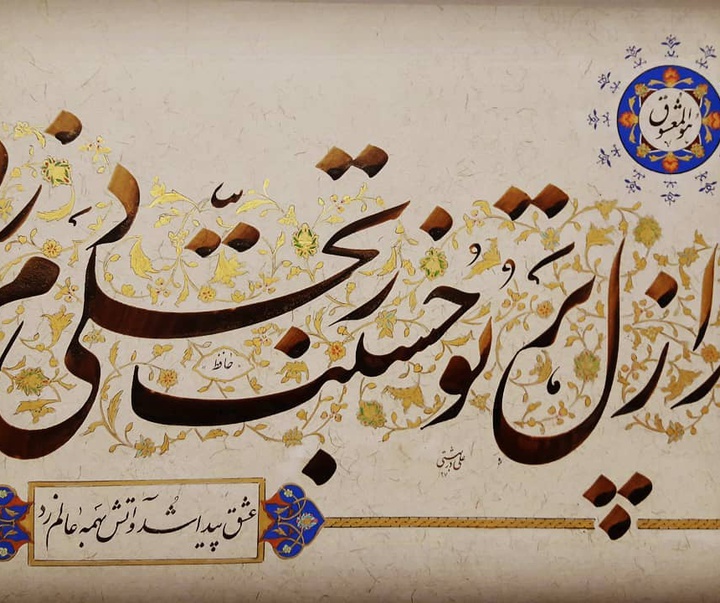 هوالمعشوق
در ازل پرتو حسنت ز تجلی دم زد
حافظ
عشق پیدا شد و آتش بهمه عالم زد